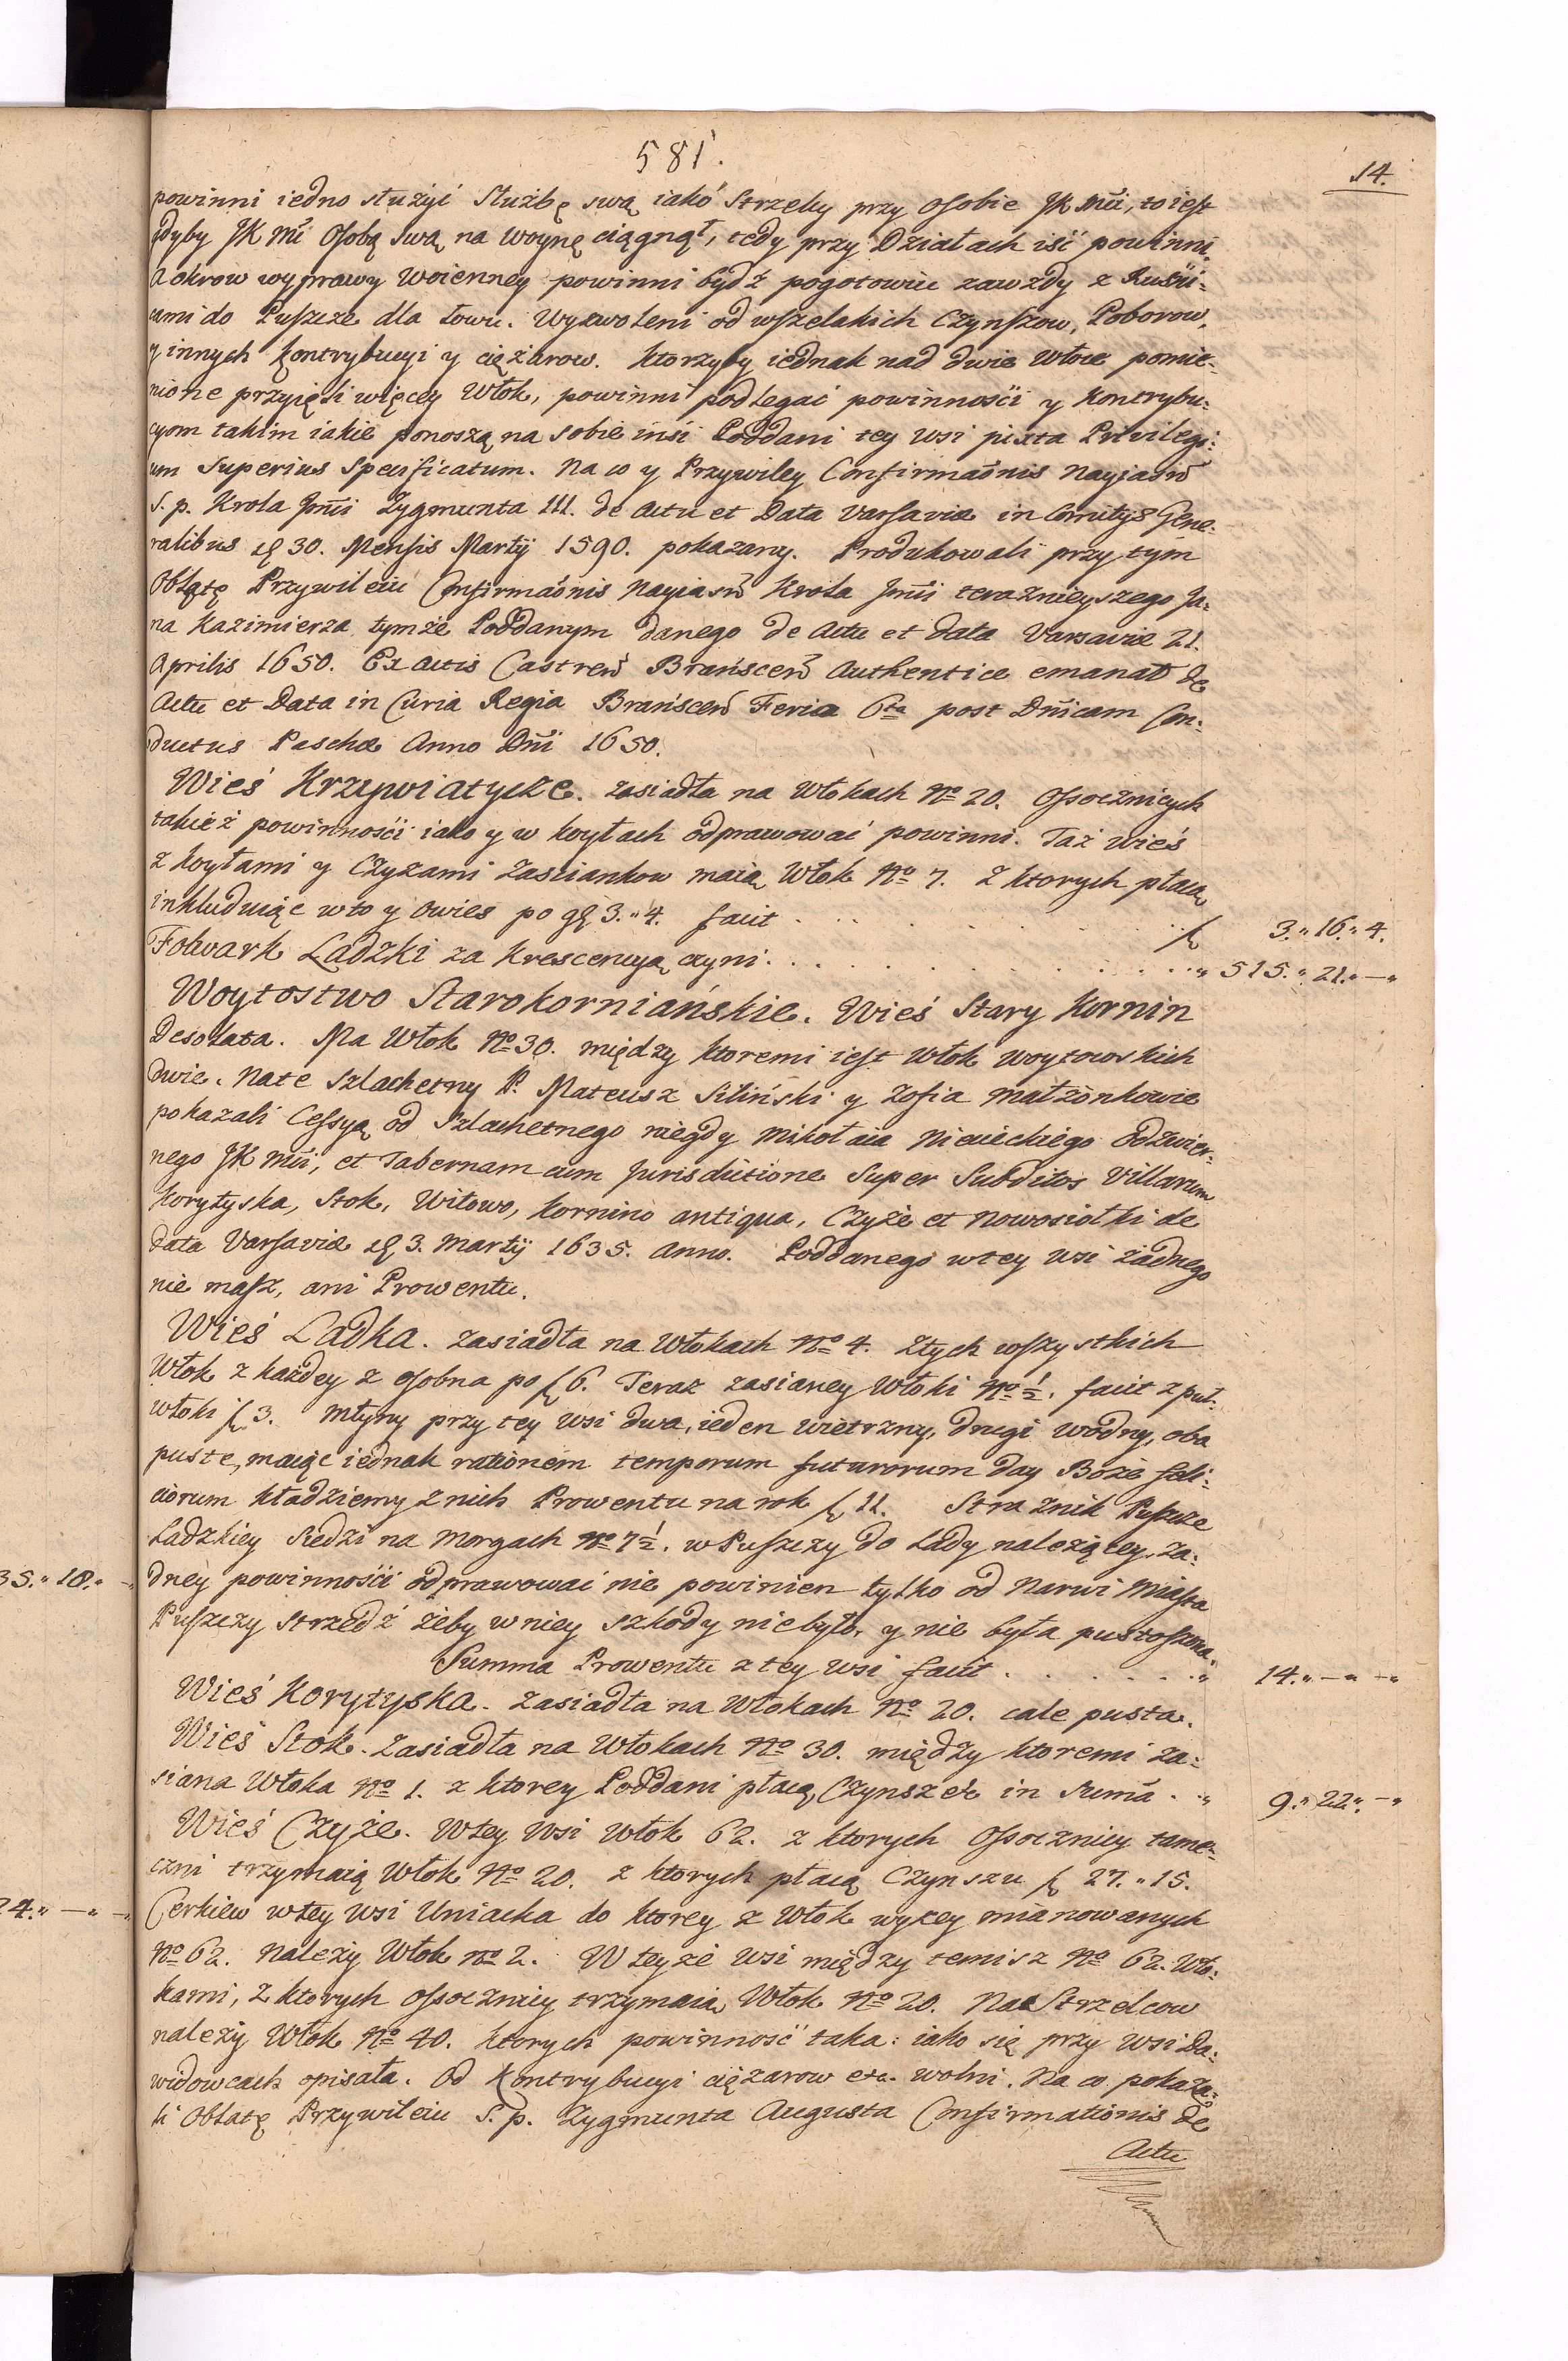 581.
14.
powinni iedno służyć Służbę swą iako Strzelcy przy Osobie JK Mći, to iest
gdyby JK Mć Osobą swą na Woynę ciągnął, tedy przy Działach iść powinni,
a okrow wyprawy Woienney powinni bydź pogotowiu zawżdy z Ruśni-
cami do Puszcze dla Łowu. Wyzwoleni od wszelakich Czynszow, Poborow,
y innych Kontrybucyi y ciężarow. Ktorzyby iednak nad dwie Włoce pomie-
nione przyięli więcey Włok, powinni podlegać powinnośći y Kontrybu-
cyom takim iakie ponoszą na sobie inśi Poddani tey wsi juxta Privilegi-
um Superius Specificatum. Na co y Przywiley Confirmaõnis Nayiasñ
S. p. Krola Jmći Zygmunta III. de Actu et Data Varsaviæ in Comitijs Gene-
ralibus 30. Mensis Martij 1590. pokazany. Produkowali przy tym
Oblatę Przywileiu Confirmaõnis Nayiasñ Krola Jmći teraznieyszego Ja-
na Kazimierza tymże Poddanym danego de Actu et Data Varsaviæ 21.
Aprilis 1650. Ex Actis Castreñ Branśceñ Authentice emanat de
Actu et Data in Curia Regia Branśceñ Feria 6ta post Dñicam Con-
ductus Paschæ Anno Dñi 1650.
Wieś Krzywiatycze. zasiadła na Włokach No 20. Osocznicych
takież powinnośći iako y w Koytach odprawować powinni. Taż wieś
z Koytami y Czyżami Zasciankow maią Włok No 7. z ktorych płacą
inkluduiąc w to y Owies po gł 3.״4. facit . . . . . . f 3.״16.״4.
Folwark Ladzki za Krescencyą czyni. . . . . . . . . ״ 515.״21.״—״
Woytostwo Starokorniańskie. Wieś Stary Kornin
Desolata. Ma Włok No 30. między ktoremi iest Włok Woytowskich
dwie. Na te Szlachetny P. Mateusz Siliński y Zofia Małżonkowie
pokazali Cessyą od Szlachetnego niegdy Mikołaia Niewieckiego Odzwier-
nego JK Mći, et Tabernam cum Jurisdictione Super Subditos Villarum
Korytyska, Stok, Witowo, Kornino antiqua, Czyże et Nowosiołki de
data Varsaviæ 3. Martij 1635. Anno. Poddanego w tey wsi żadnego
nie masz, ani Prowentu.
Wieś Ladka. zasiadła na Włokach No 4. Z tych wszystkich
Włok z każdey z osobna po f 6. Teraz zasianey Włoki No ½. facit z puł-
włoki f 3. Młyny przy tey wsi dwa, ieden wietrzny, drugi wodny, oba
puste, maiąc iednak rationem temporum futurorum day Boże feli-
ciorum kładziemy z nich Prowentu na rok f 11. Straznik Puszcze
Ladzkiey Siedzi na Morgach No 7½. w Puszczy do Lady należącey. Ża-
dney powinnośći odprawować nie powinien tylko od Narwi Miasta
Puszczy strzedź żeby w niey szkody nie było, y nie była pustoszona.
Summa Prowentu z tey wsi facit . . . . . . ״ 14.״—״—״
Wieś Korytyska. Zasiadła na Włokach No 20. cale pusta.
Wieś Stok. Zasiadła na Włokach No 30. między ktoremi za-
siana Włoka No 1. z ktorey Poddani płacą Czynszek in Sumã . . ״ 9.״22״.—״
Wieś Czyże. W tey Wsi Włok 62. z ktorych Osocznicy tame-
czni trzymaią Włok No 20. z ktorych płacą Czynszu f 27.״15.
Cerkiew w tey Wsi Uniacka do ktorey z Włok wyżey mianowanych
No 62. Należy Włok No 2. W teyże Wsi między temisz No 62. Wło-
kami, z ktorych Osocznicy trzymaią Włok No 20. Na Strzelcow
należy Włok No 40. ktorych powinność taka: iako się przy Wsi Da-
widowcach opisała. Od Kontrybucyi ciężarow etc. wolni. Na co pokaza-
li Oblatę Przywileiu S. p. Zygmunta Augusta Confirmationis de
Actu
35.״18.״
24.״—״—